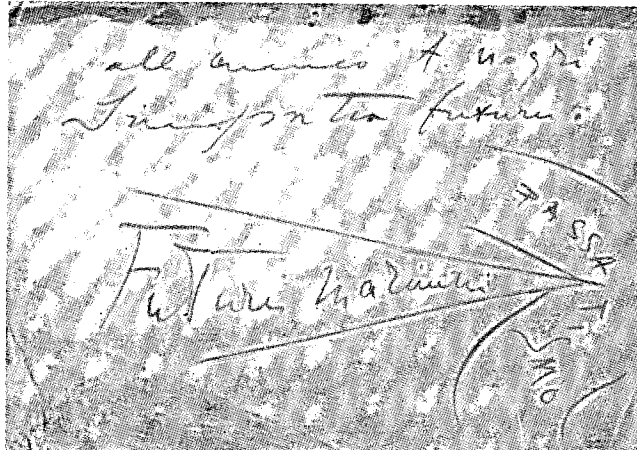 all amico A. Negri
Simpatia futuris.
FuTuris Marinetti
PASSATISMO